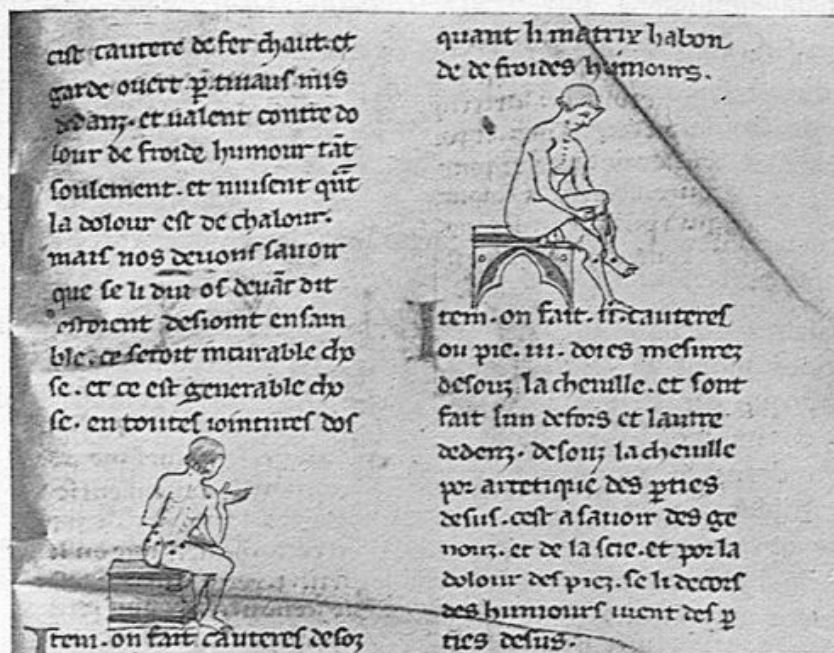 cist cautere de fer chaut. et
garde ouert p̱ tuiaus mis
dedenz. et ualent contre do
lour de froide humour tāt
soulement. et nuisent qūt
la dolour est de chalour.
mais nos deuons sauoir
que se li dui os deuāt dit
estoient desioint ensam
ble. ce seroit incurable cho
se. et ce est generable cho
se. en toutes iointures dos
Item. on fait cauteres desoz
quant li matrix habon
de de froides humours.
Item. on fait .ii. cauteres
ou pie. iii. doies mesurez
desouz la cheuille. et sont
fait lun defors et lautre
dedenz. desouz la cheuille
por artetique des p̱ties
desus. cest a sauoir des ge
nouz. et de la scie. et por la
dolour des piez. se li decors
des humours uient des p̱
ties desus.